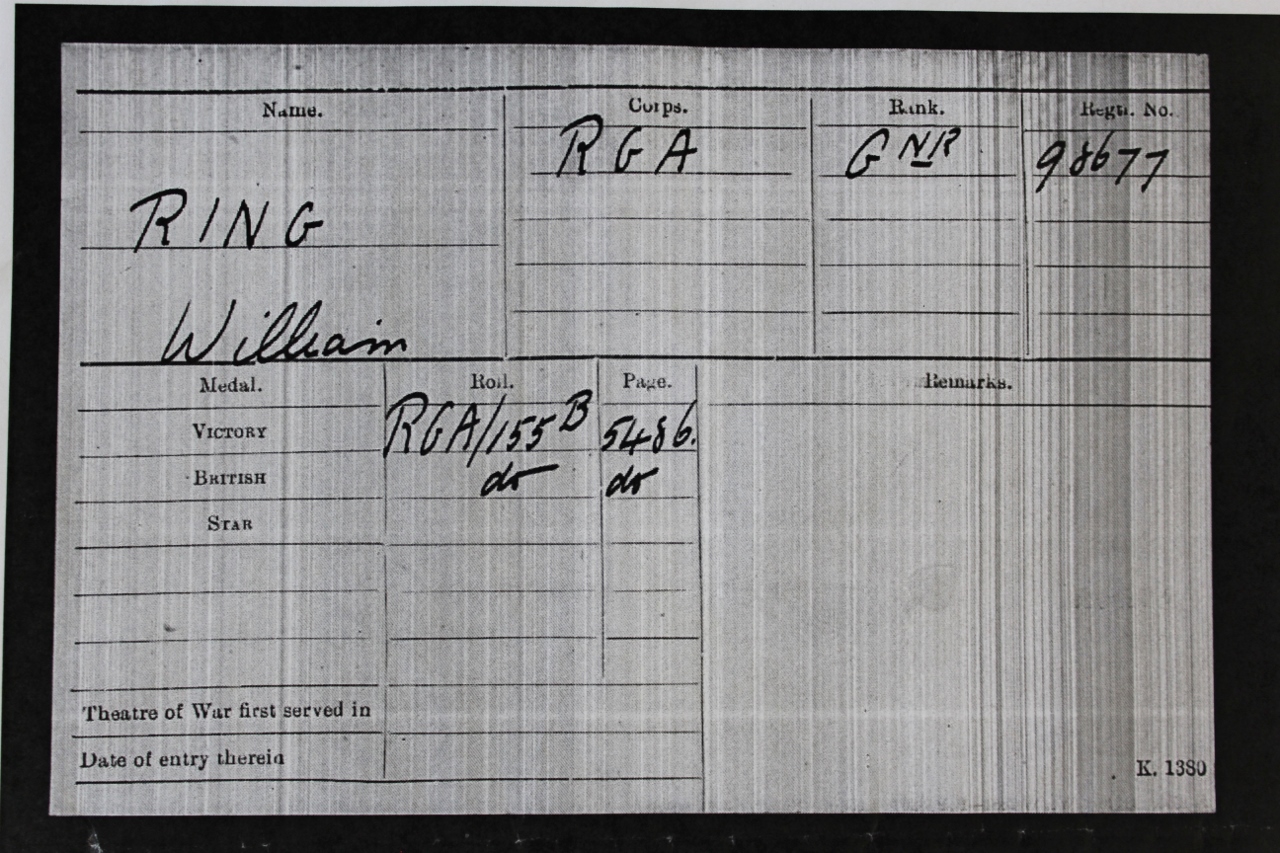 Name. Corps. Rank. Regtl. No.
RGA GNR 98677
RING
William
Medal. Roll. Page. Remarks.
VICTORY RGA/155B 5486.
BRITISH do do
STAR
Theatre of War first served in
Date of entry therein
K. 1380